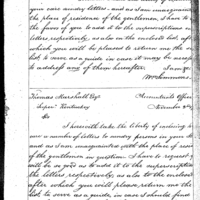 your care under letters, and as I am unacquainted
the place of residence of the gentlemen, I have to
the favor of you to add it to the superscriptions
letters, respectively, as also in the enclosed list, aft
which you will be pleased to return me the
to serve as a guide in case it may be neces
to address any of them hereafter. I am &c
Wm Simmons
Thomas Marshall Esqr
Accountants Office
Superr Kentucky
November
Sir
I herewith take the liberty of enclosing
a number of letters to sundry persons in your
and as I am unacquainted with the place of resid
of the gentlemen in question I have to request
will be so good as to add it to the superscription
the letters, respectively, as also to the enclosed
after which you will please return me the
to serve as a guide, in case I should find